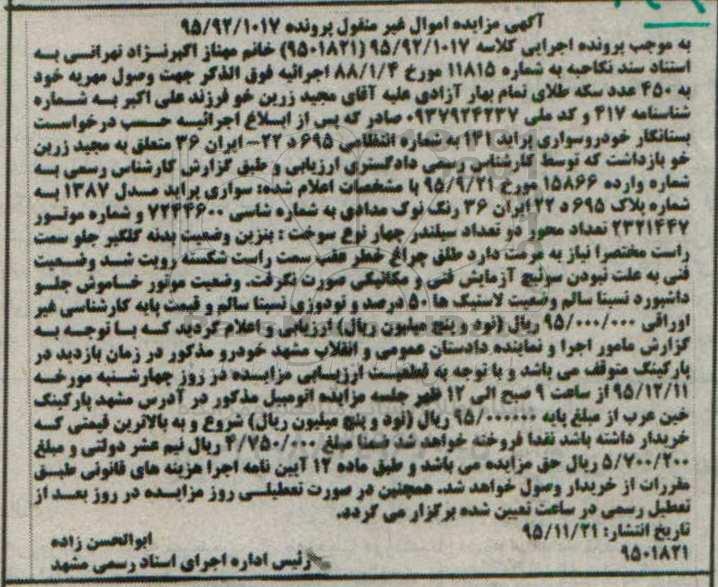 آگهی مزایده اموال غیر منقول پرونده ۹۵/۹۲/۱۰۱۷
به موجب پرونده اجرایی کلاسه ۹۵/۹۲/۱۰۱۷ (۹۵۰۱۸۲۱) خانم مهناز اکبرنژاد تهرانی به
استناد سند نکاحیه به شماره ۱۱۸۱۵ مورخ ۸۸/۱/۴ اجرائیه فوق الذکر جهت وصول مهریه خود
به ۴۵۰ عدد سکه طلای تمام بهار آزادی علیه آقای مجید زرین خو فرزند علی اکبر به شماره
شناسنامه ۴۱۷ و کد ملی ۰۹۳۷۹۲۴۲۳۷ صادر که پس از ابلاغ اجرائیه حسب درخواست
بستانکار خودروسواری پراید ۱۴۱ به شماره انتظامی ۶۹۵ د ۲۲- ایران ۳۶ متعلق به مجید زرین
خو بازداشت که توسط کارشناس رسمی دادگستری ارزیابی و طبق گزارش کارشناس رسمی به
شماره وارده ۱۵۸۶۶ مورخ ۹۵/۹/۲۱ با مشخصات اعلام شده: سواری پراید مدل ۱۳۸۷ به
شماره پلاک ۶۹۵ د ۲۲ ایران ۳۶ رنگ نوک مدادی به شماره شاسی ۷۲۴۴۶۰۰ و شماره موتور
۲۳۲۱۴۴۷ تعداد محور دو تعداد سیلندر چهار نوع سوخت : بنزین وضعیت بدنه گلگیر جلو سمت
راست مختصرا نیاز به مرمت دارد طلق چراغ خطر عقب سمت راست شکسته رویت شد وضعیت
فنی به علت نبودن سوئیچ آزمایش فنی و مکانیکی صورت نگرفت. وضعیت موتور خاموش جلو
داشبورد نسبتا سالم وضعیت لاستیک ها ۵۰ درصد و تودوزی نسبتا سالم و قیمت پایه کارشناسی غیر
اوراقی ۹۵/۰۰۰/۰۰۰ ریال (نود و پنج میلیون ریال) ارزیابی و اعلام گردید که با توجه به
گزارش مامور اجرا و نماینده دادستان عمومی و انقلاب مشهد خودرو مذکور در زمان بازدید در
پارکینگ متوقف می باشد و با توجه به قطعیت ارزیابی مزایده در روز چهارشنبه مورخه
۹۵/۱۲/۱۱ از ساعت ۹ صبح الی ۱۲ ظهر جلسه مزایده اتومبیل مذکور در آدرس مشهد پارکینگ
خین عرب از مبلغ پایه ۹۵/۰۰۰۰۰۰ ریال (نود و پنج میلیون ریال) شروع و به بالاترین قیمتی که
خریدار داشته باشد نقدا فروخته خواهد شد ضمنا مبلغ ۴/۷۵۰/۰۰۰ ریال نیم عشر دولتی و مبلغ
۵/۷۰۰/۲۰۰ ریال حق مزایده می باشد و طبق ماده ۱۲ آیین نامه اجرا هزینه های قانونی طبق
مقررات از خریدار وصول خواهد شد. همچنین در صورت تعطیلی روز مزایده در روز بعد از
تعطیل رسمی در ساعت تعیین شده برگزار می گردد.
تاریخ انتشار: ۹۵/۱۱/۲۱
ابوالحسن زاده
۹۵۰۱۸۲۱
رئیس اداره اجرای اسناد رسمی مشهد